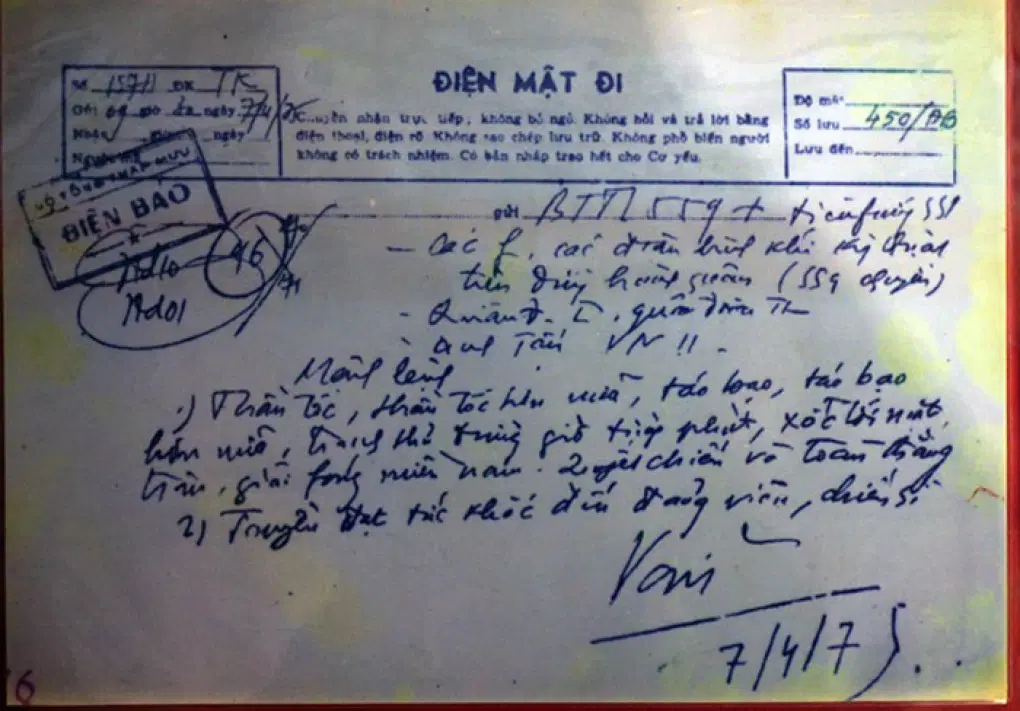 ĐIỆN MẬT ĐI
Số 157H ĐK TK
Gửi ngày 7/4/75
Nhận giờ ngày
Người mã
Chuyên nhận trực tiếp, không bỏ ngỏ. Không hỏi và trả lời bằng
điện thoại, điện rõ. Không sao chép lưu trữ. Không phổ biến người
không có trách nhiệm. Có bản nháp trao hết cho Cơ yếu.
Độ mật
Số lưu 450/ĐB
Lưu đến
BỘ TỔNG THAM MƯU
ĐIỆN BÁO
96
Ad10
Ad01
gửi BTTL 559 +
- Các f, các đoàn binh khí kỹ thuật
trên đường hành quân (559 chuyển)
- Quân đ. I, quân đoàn
Mệnh lệnh
1) Thần tốc, thần tốc hơn nữa, táo bạo, táo bạo
hơn nữa, tranh thủ từng giờ từng phút, xốc tới mặt
trận, giải fóng miền nam. Quyết chiến và toàn thắng
2) Truyền đạt tức khắc đến đảng viên, chiến sĩ
Văn
7/4/75
6